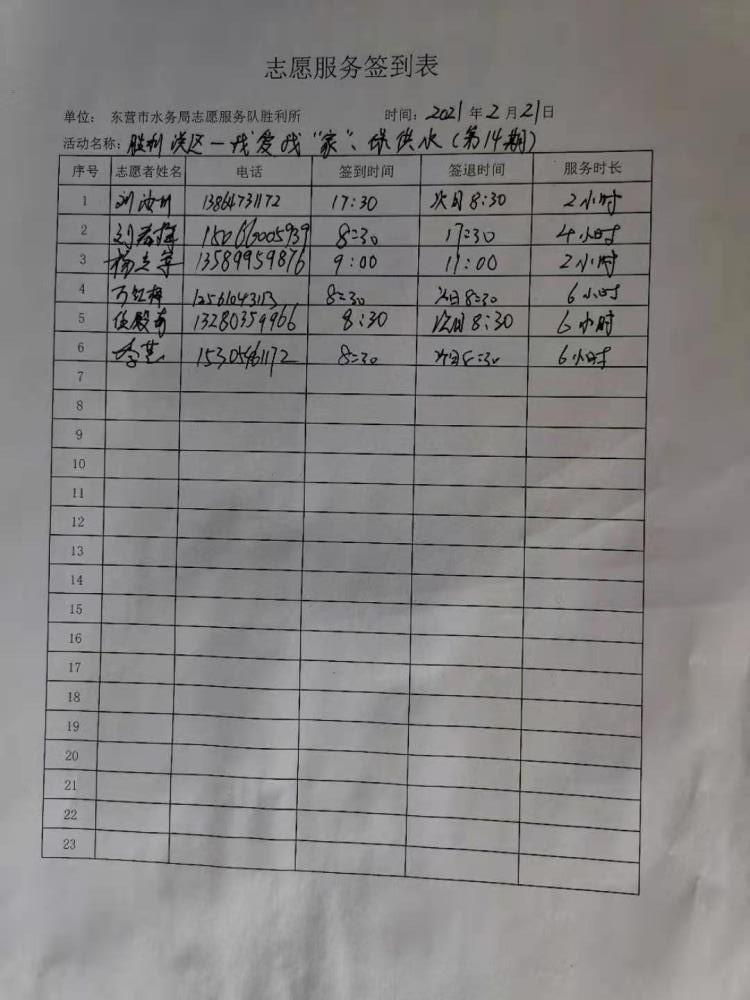 志愿服务签到表
单位: 东营市水务局志愿服务队胜利所 时间: 2021年2月21日
活动名称: 胜利滨区一我爱我"家"、保供水(第14期)
序号 志愿者姓名 电话 签到时间 签退时间 服务时长
1 13864731172 17:30 次日8:30 2小时
2 15066005939 8:30 17:30 4小时
3 13589959876 9:00 11:00 2小时
4 8:30 次日8:30 6小时
5 13280359966 8:30 次日8:30 6小时
6 李芸 15305461172 8:30 次日8:30 6小时
7
8
9
10
11
12
13
14
15
16
17
18
19
20
21
22
23